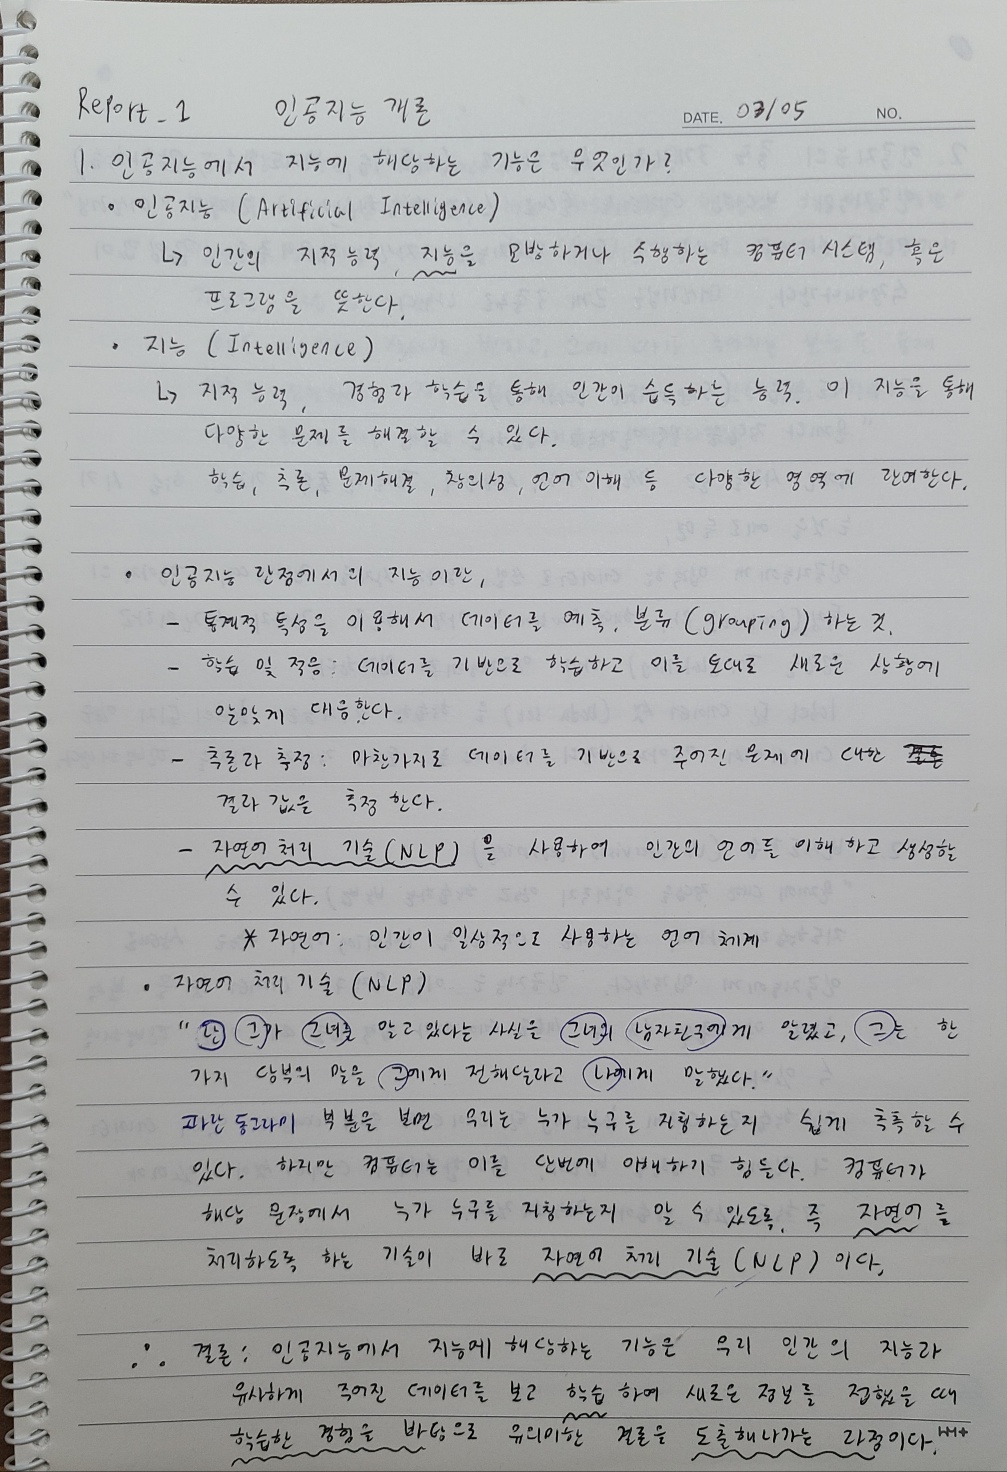 Report_1 인공지능 개론 DATE. 03/05 NO.
1. 인공지능에서 지능에 해당하는 기능은 무엇인가?
• 인공지능 (Artificial Intelligence)
↳ 인간의 지적능력, 지능을 모방하거나 수행하는 컴퓨터 시스템, 혹은
프로그램을 뜻한다.
• 지능 (Intelligence)
↳ 지적 능력, 경험과 학습을 통해 인간이 습득하는 능력. 이 지능을 통해
다양한 문제를 해결할 수 있다.
학습, 추론, 문제해결, 창의성, 언어 이해 등 다양한 영역에 관여한다.
• 인공지능 관점에서의 지능이란,
- 통계적 특성을 이용해서 데이터를 예측, 분류(grouping) 하는 것.
- 학습 및 적응: 데이터를 기반으로 학습하고 이를 토대로 새로운 상황에
알맞게 대응한다.
- 추론과 추정: 마찬가지로 데이터를 기반으로 주어진 문제에 대한
결과 값을 측정 한다.
- 자연어 처리 기술(NLP)을 사용하여 인간의 언어를 이해하고 생성할
수 있다.
* 자연어: 인간이 일상적으로 사용하는 언어 체계
• 자연어 처리 기술(NLP)
"난 그가 그녀를 알고 있다는 사실은 그녀의 남자친구에게 알렸고, 그는 한
가지 당부의 말을 그에게 전해달라고 나에게 말했다."
파란 동그라미 부분을 보면 우리는 누가 누구를 지칭하는지 쉽게 추측할 수
있다. 하지만 컴퓨터는 이를 단번에 이해하기 힘들다. 컴퓨터가
해당 문장에서 누가 누구를 지칭하는지 알 수 있도록, 즉 자연어를
처리하도록 하는 기술이 바로 자연어 처리 기술(NLP)이다.
∴ 결론: 인공지능에서 지능에 해당하는 기능은 우리 인간의 지능과
유사하게 주어진 데이터를 보고 학습하여 새로운 정보를 접했을 때
학습한 경험을 바탕으로 유의미한 결론을 도출해나가는 과정이다.